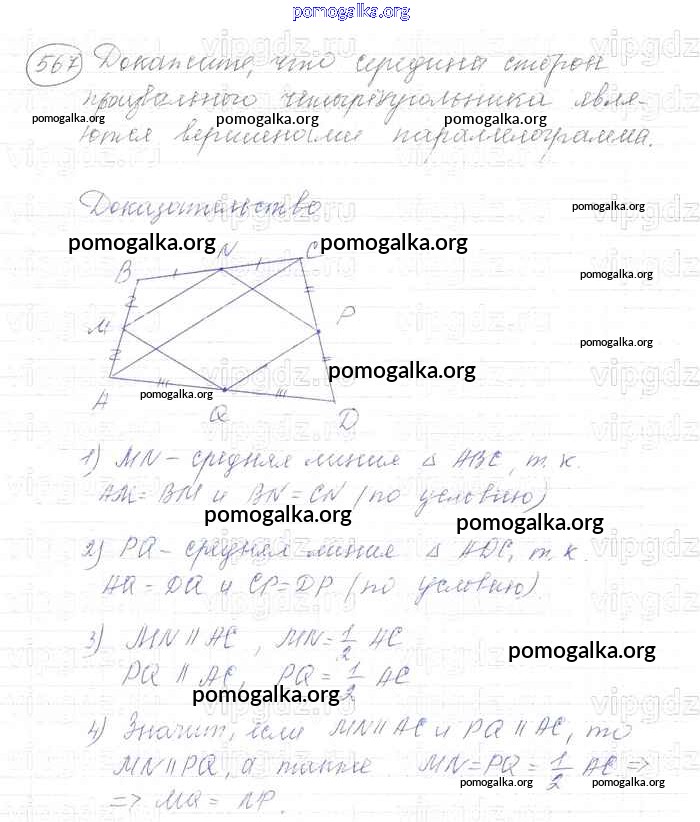 pomogalka.org
567 Докажите, что середины сторон
произвольного четырёхугольника явля-
pomogalka.org pomogalka.org pomogalka.org
ются вершинами параллелограмма.
Доказательство
pomogalka.org
pomogalka.org pomogalka.org
N C
B
pomogalka.org
M P
pomogalka.org
A pomogalka.org
Q D
1) MN – средняя линия Δ ABC, т.к.
AM = BM и BN = CN (по условию)
pomogalka.org pomogalka.org
2) PQ – средняя линия Δ ADC, т.к.
AQ = DQ и CP = DP (по условию).
3) MN || AC, MN = 1/2 AC
pomogalka.org
PQ || AC, PQ = 1/2 AC
pomogalka.org
4) Значит, если MN || AC и PQ || AC, то
MN || PQ, а также MN = PQ = 1/2 AC =>
pomogalka.org pomogalka.org
=> MQ = NP.